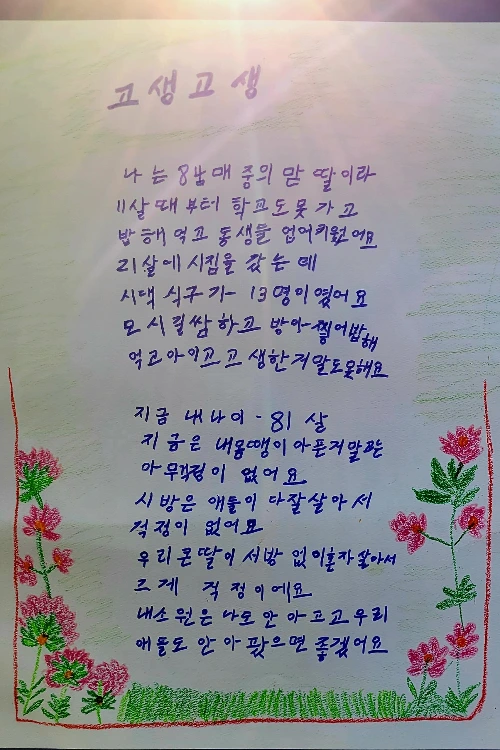 고생고생
나는 8남매 중의 맏 딸이라
11살 때 부터 학교도 못 가고
밥해 먹고 동생들 업어키웠어요
21살에 시집을 갔는데
시댁 식구가 13명이였어요
모시길쌈하고 방아찧어밥해
먹고아이고고생한거말도못해요
지금 내나이 - 81 살
지금은 내몸땡이아픈거말고는
아무걱정이 없어요
시방은 애들이 다잘살아서
걱정이 없어요
우리큰딸이서방 없이혼자살아서
그게 걱정이에요
내소원은나도안아프고우리
애들도 안아팠으면 좋겠어요